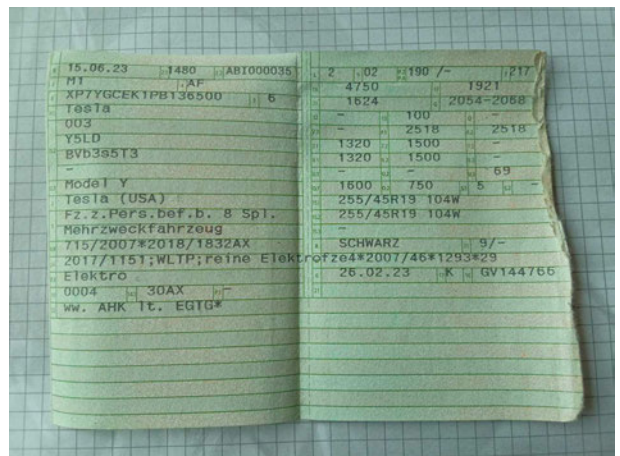 15.06.23 1480 ABI000035
M1 AF
XP7YGCEK1PB136500 6
Tesla
003
Y5LD
BVb3s5T3
-
Model Y
Tesla (USA)
Fz.z.Pers.bef.b. 8 Spl.
Mehrzweckfahrzeug
715/2007*2018/1832AX
2017/1151;WLTP;reine Elektrofze4*2007/46*1293*29
Elektro
0004 30AX -
ww. AHK lt. EGTG*
2 02 190 /- 217
4750 1921
1624 2054-2068
- 100 -
- 2518 2518
1320 1500 -
1320 1500 -
- - 69
1600 750 5 -
255/45R19 104W
255/45R19 104W
-
SCHWARZ 9/-
26.02.23 K GV144766